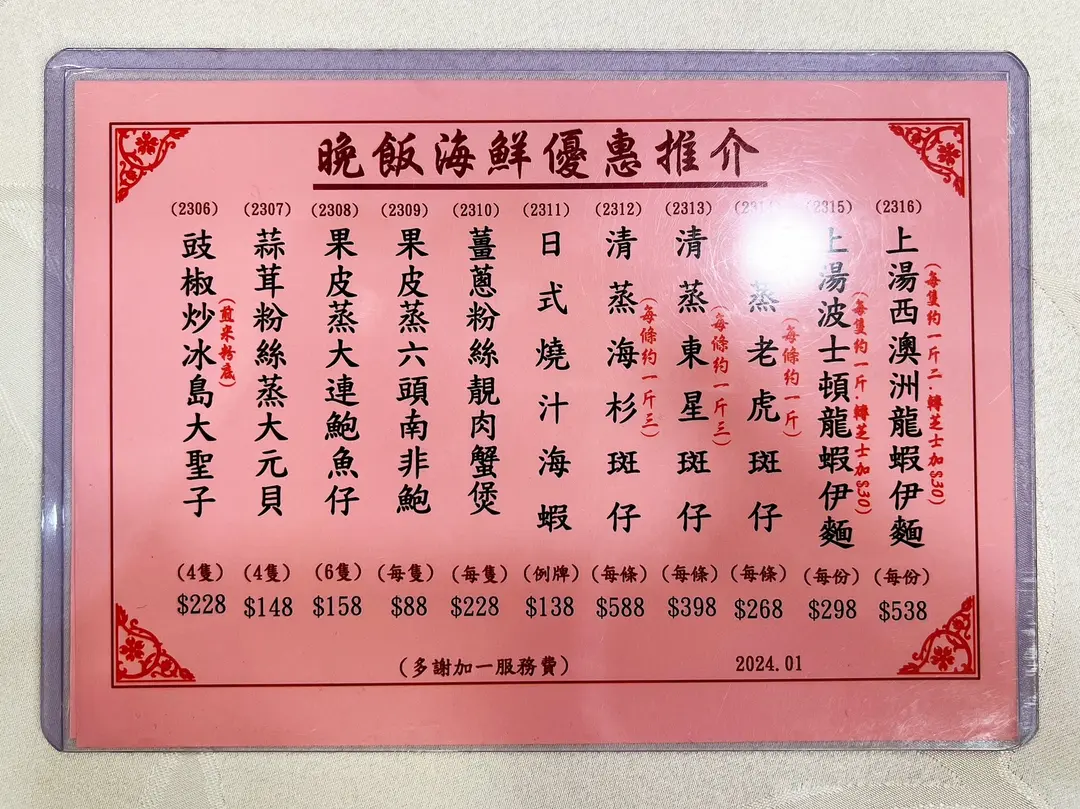 晚飯海鮮優惠推介
(2316)
上湯西澳洲龍蝦伊麵
(每隻約一斤二.轉芝士加$30)
(每份)
$538
(2315)
上湯波士頓龍蝦伊麵
(每隻約一斤.轉芝士加$30)
(每份)
$298
(2314)
蒸老虎斑仔
(每條約一斤)
(每條)
$268
(2313)
清蒸東星斑仔
(每條約一斤三)
(每條)
$398
(2312)
清蒸海杉斑仔
(每條約一斤三)
(每條)
$588
(2311)
日式燒汁海蝦
(例牌)
$138
(2310)
薑蔥粉絲靚肉蟹煲
(每隻)
$228
(2309)
果皮蒸六頭南非鮑
(每隻)
$88
(2308)
果皮蒸大連鮑魚仔
(6隻)
$158
(2307)
蒜茸粉絲蒸大元貝
(4隻)
$148
(2306)
豉椒炒冰島大聖子
(煎米粉底)
(4隻)
$228
(多謝加一服務費)
2024.01